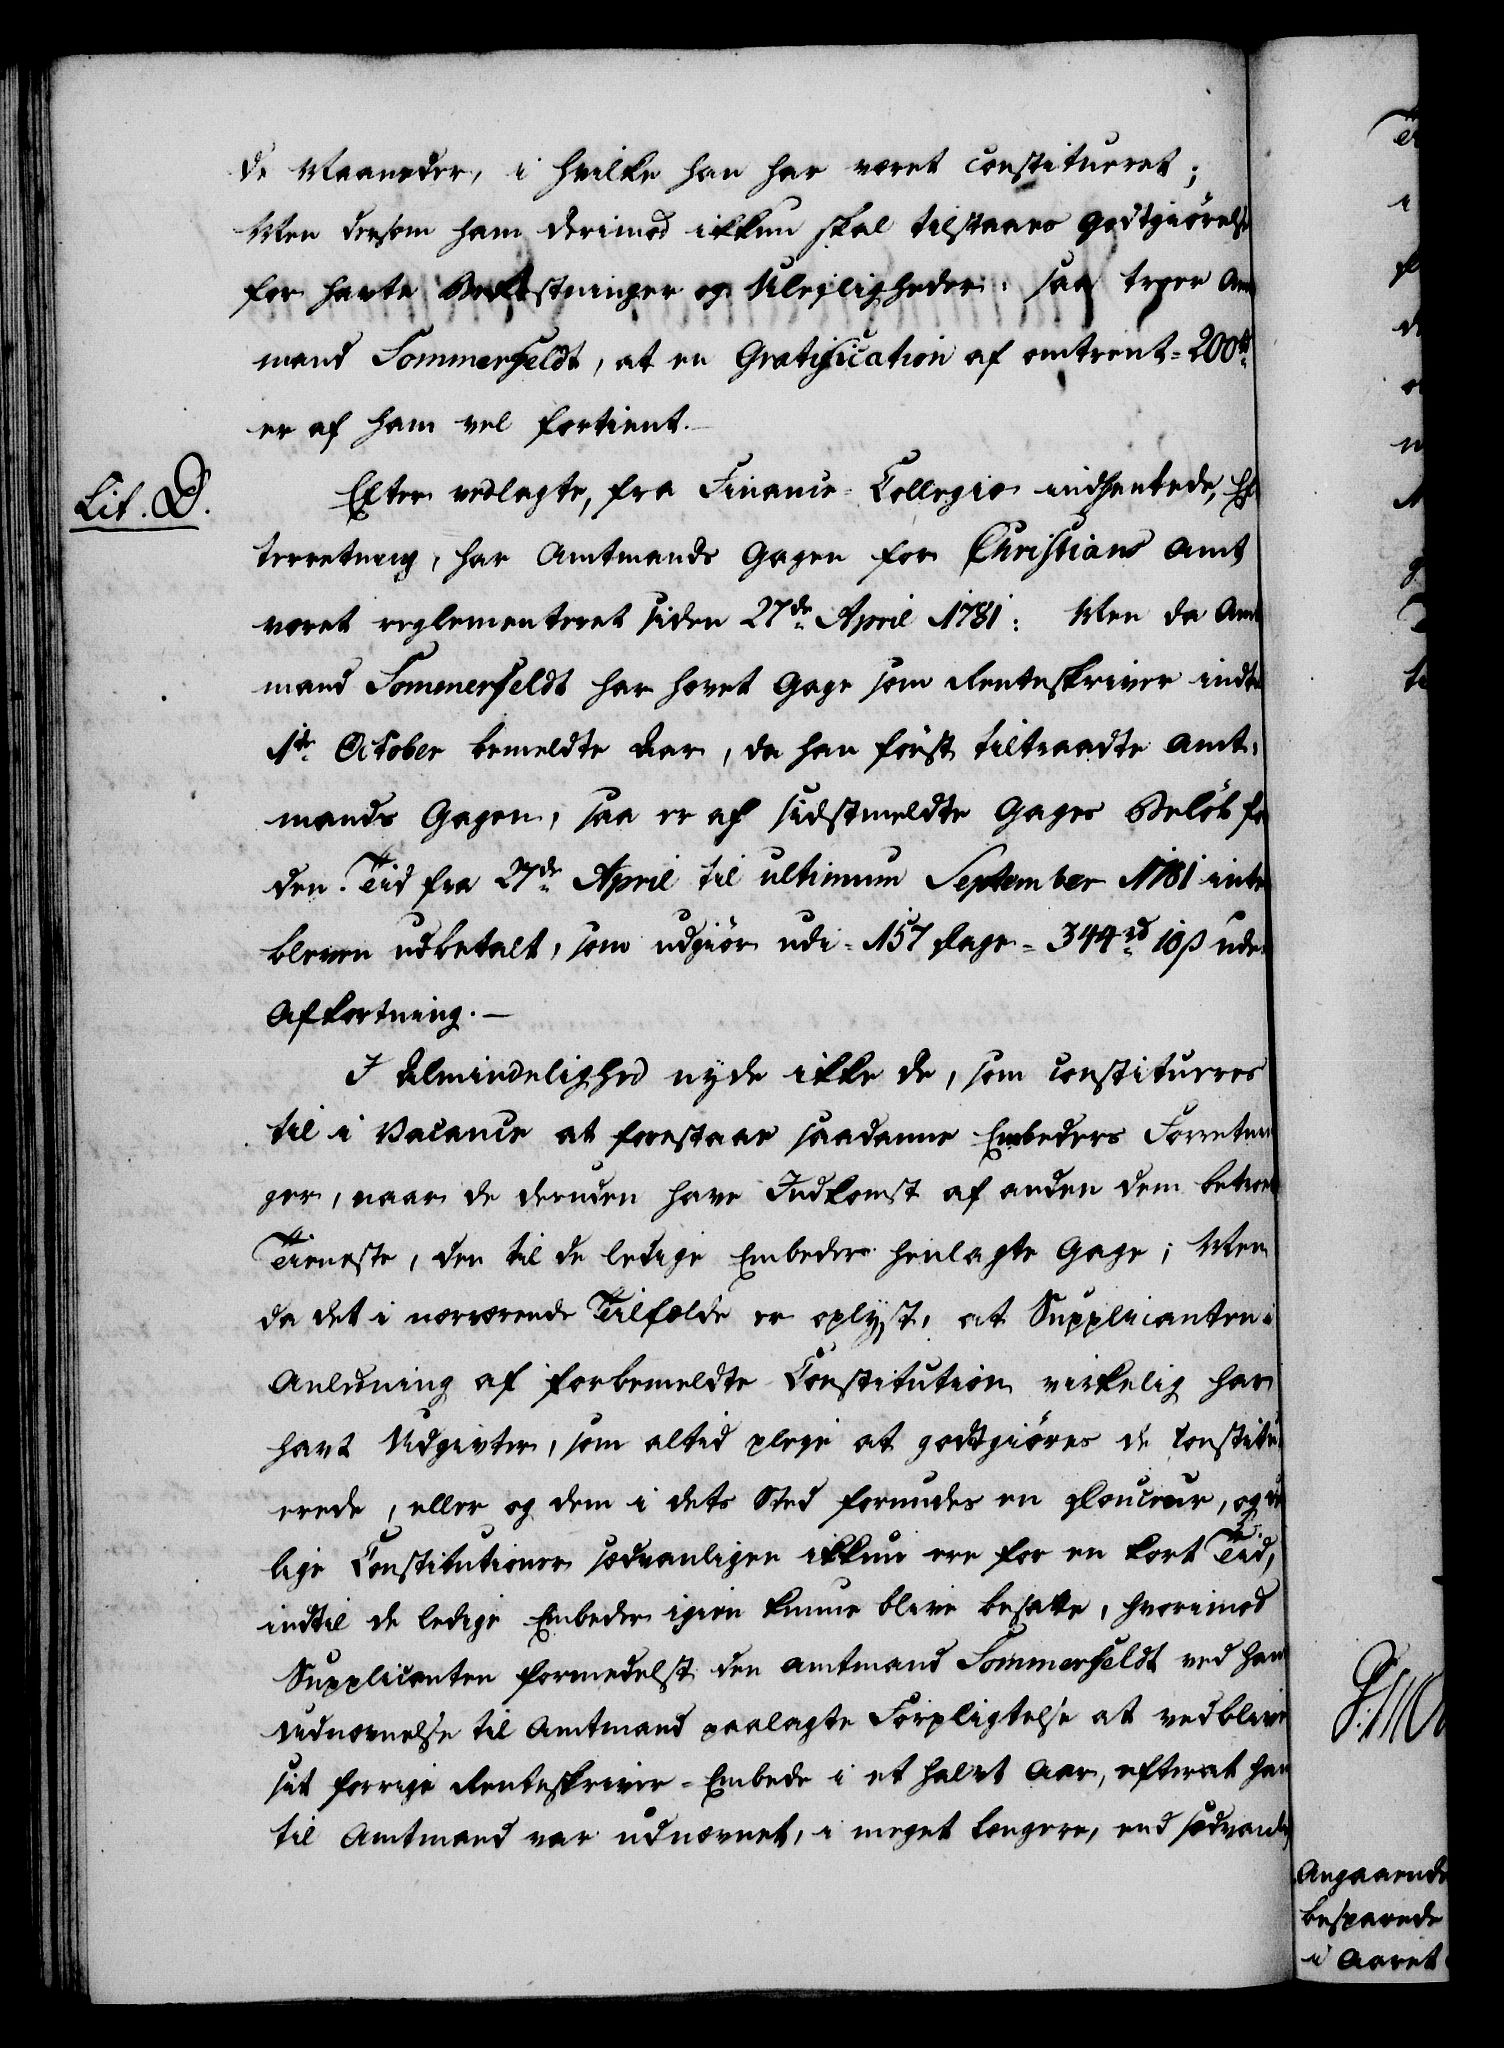 de Maaneder, i hvilke han har været constitueret;
Men dersom ham derimod ikkun skal tilstaaes Godtgiørelse
for havte Bekostninger og Uleiligheder, saa troer Amt
mand Sommerfeldt, at en Gratification af omtrent 200 rd
er af ham vel fortient.
Lit. D.
Efter vedlagte, fra Finance-Collegio indhentede, Ef
terretning, har Amtmands Gagen for Christians Amt
været reglementeret siden 27de April 1781: Men da Amt
mand Sommerfeldt har hævet Gage som Renteskriver indtil
1ste October bemeldte Aar, da han først tiltraadte Amt-
mands Gagen, saa er af sidstmeldte Gages Beløb for
den Tid fra 27de April til ultimum September 1781 intet
bleven udbetalt, som udgiør udi 157 Dage = 344 rd 10 ß uden
Afkortning.
I Almindelighed nyde ikke de, som constitueres
til i Vacance at forestaae saadanne Embeders Forretnin
ger, naar de deruden have Indkomst af anden dem betroet
Tieneste, den til de ledige Embeder henlagte Gage; Men
da det i nærværende Tilfælde er oplyst, at Supplicanten i
Anledning af forbemeldte Constitution virkelig har
havt Udgivter, som altid pleje at godtgiøres de Constitu-
erede, eller og dem i dets Sted forundes en Douceur, og de
lige Constitutioner sædvanligen ikkun ere for en kort Tiid,
indtil de ledige Embeder igien kunne blive besatte, hvorimod
Supplicanten formedelst den Amtmand Sommerfeldt ved hans
Udnævnelse til Amtmand paalagte Forpligtelse at vedblive
sit forrige Renteskriver-Embede i et halvt Aar, efterat han
til Amtmand var udnævnet, i meget længere, end sædvanlig
Angaaende
besparede
i Aaret